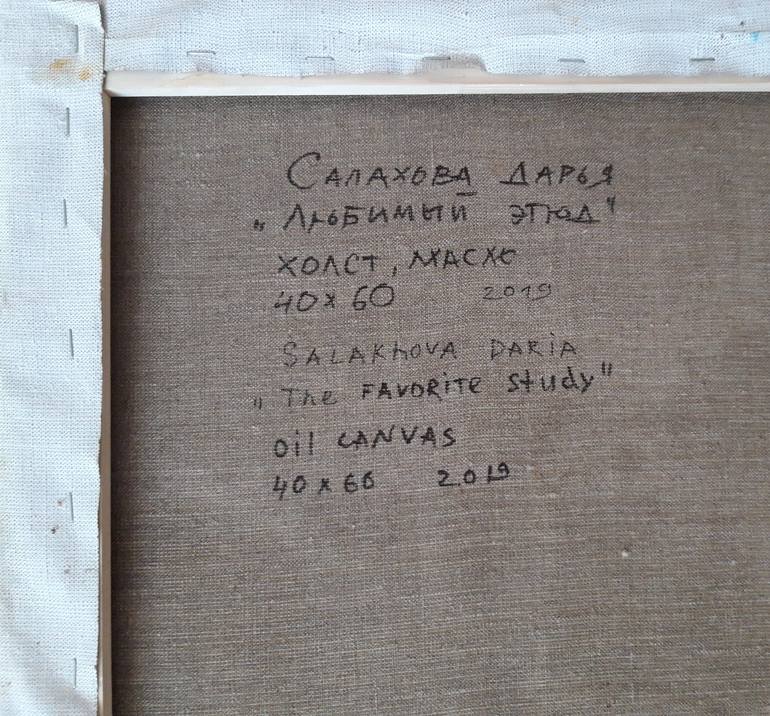 Салахова Дарья
„Любимый этюд"
холст, масло
40х60 2019
SALAKHOVA DARIA
"The FAVORITE study"
oil CANVAS
40x60 2019